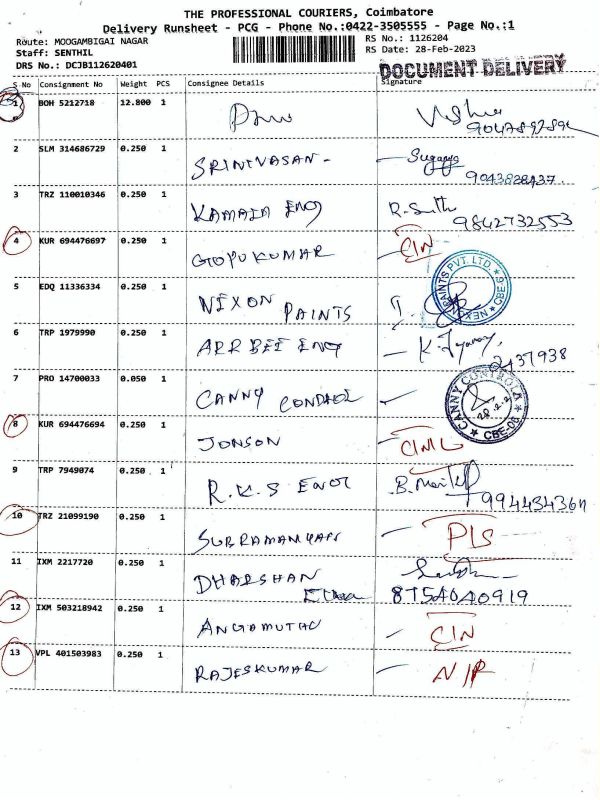 THE PROFESSIONAL COURIERS, Coimbatore
Delivery Runsheet - PCG - Phone No.:0422-3505555 - Page No.:1
Route: MOOGAMBIGAI NAGAR RS No.: 1126204
Staff: SENTHIL RS Date: 28-Feb-2023
DRS No.: DCJB112620401 DOCUMENT DELIVERY
S No Consignment No Weight PCS Consignee Details Signature
1 BOH 5212718 12.800 1
2 SLM 314686729 0.250 1 SRINIVASAN - Suganya
9043828437
3 TRZ 110010346 0.250 1 KAMALA ENG R.
9842732553
4 KUR 694476697 0.250 1 GOPUKUMAR CIN
5 EDQ 11336334 0.250 1 NIXON PAINTS
PAINTS PVT. LTD. CBE-6
6 TRP 1979990 0.250 1 ARR BEE ENG - K.
2437938
7 PRO 14700033 0.050 1 CANNY CONTROL
CANNY CONTROLA CBE-06
8 KUR 694476694 0.250 1 JONSON
9 TRP 7949074 0.250 1 R.K.S ENGG B.
10 TRZ 21099190 0.250 1 SUBRAMANYAN - PIS
11 IXM 2217720 0.250 1 DHARSHAN
8754040919
12 IXM 503218942 0.250 1 ANGAMUTHU - CIN
13 VPL 401503983 0.250 1 RAJESKUMAR - N/R